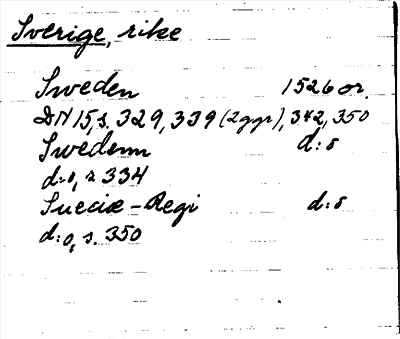 Sverige, rike
Sweden 1526 or.
DN 15, s. 329, 339 (2 ggr), 342, 350
Swedenn d:o
d:o, s 334
Sueciæ-Regi d:o
d:o, s. 350